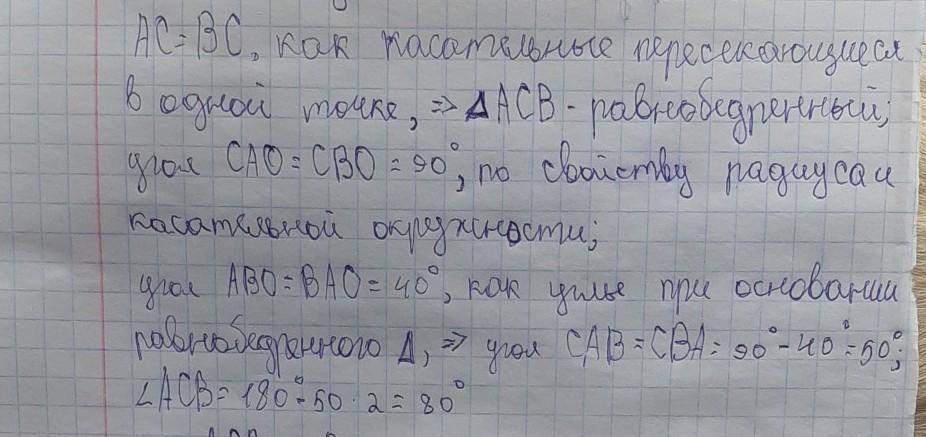 AC=BC, как касательные пересекающиеся
в одной точке, => ΔACB - равнобедренный;
угол CAO = CBO = 90°, по свойству радиуса и
касательной окружности;
угол ABO = BAO = 40°, как углы при основании
равнобедренного Δ, => угол CAB = CBA = 90° - 40° = 50°;
∠ACB = 180° - 50 · 2 = 80°